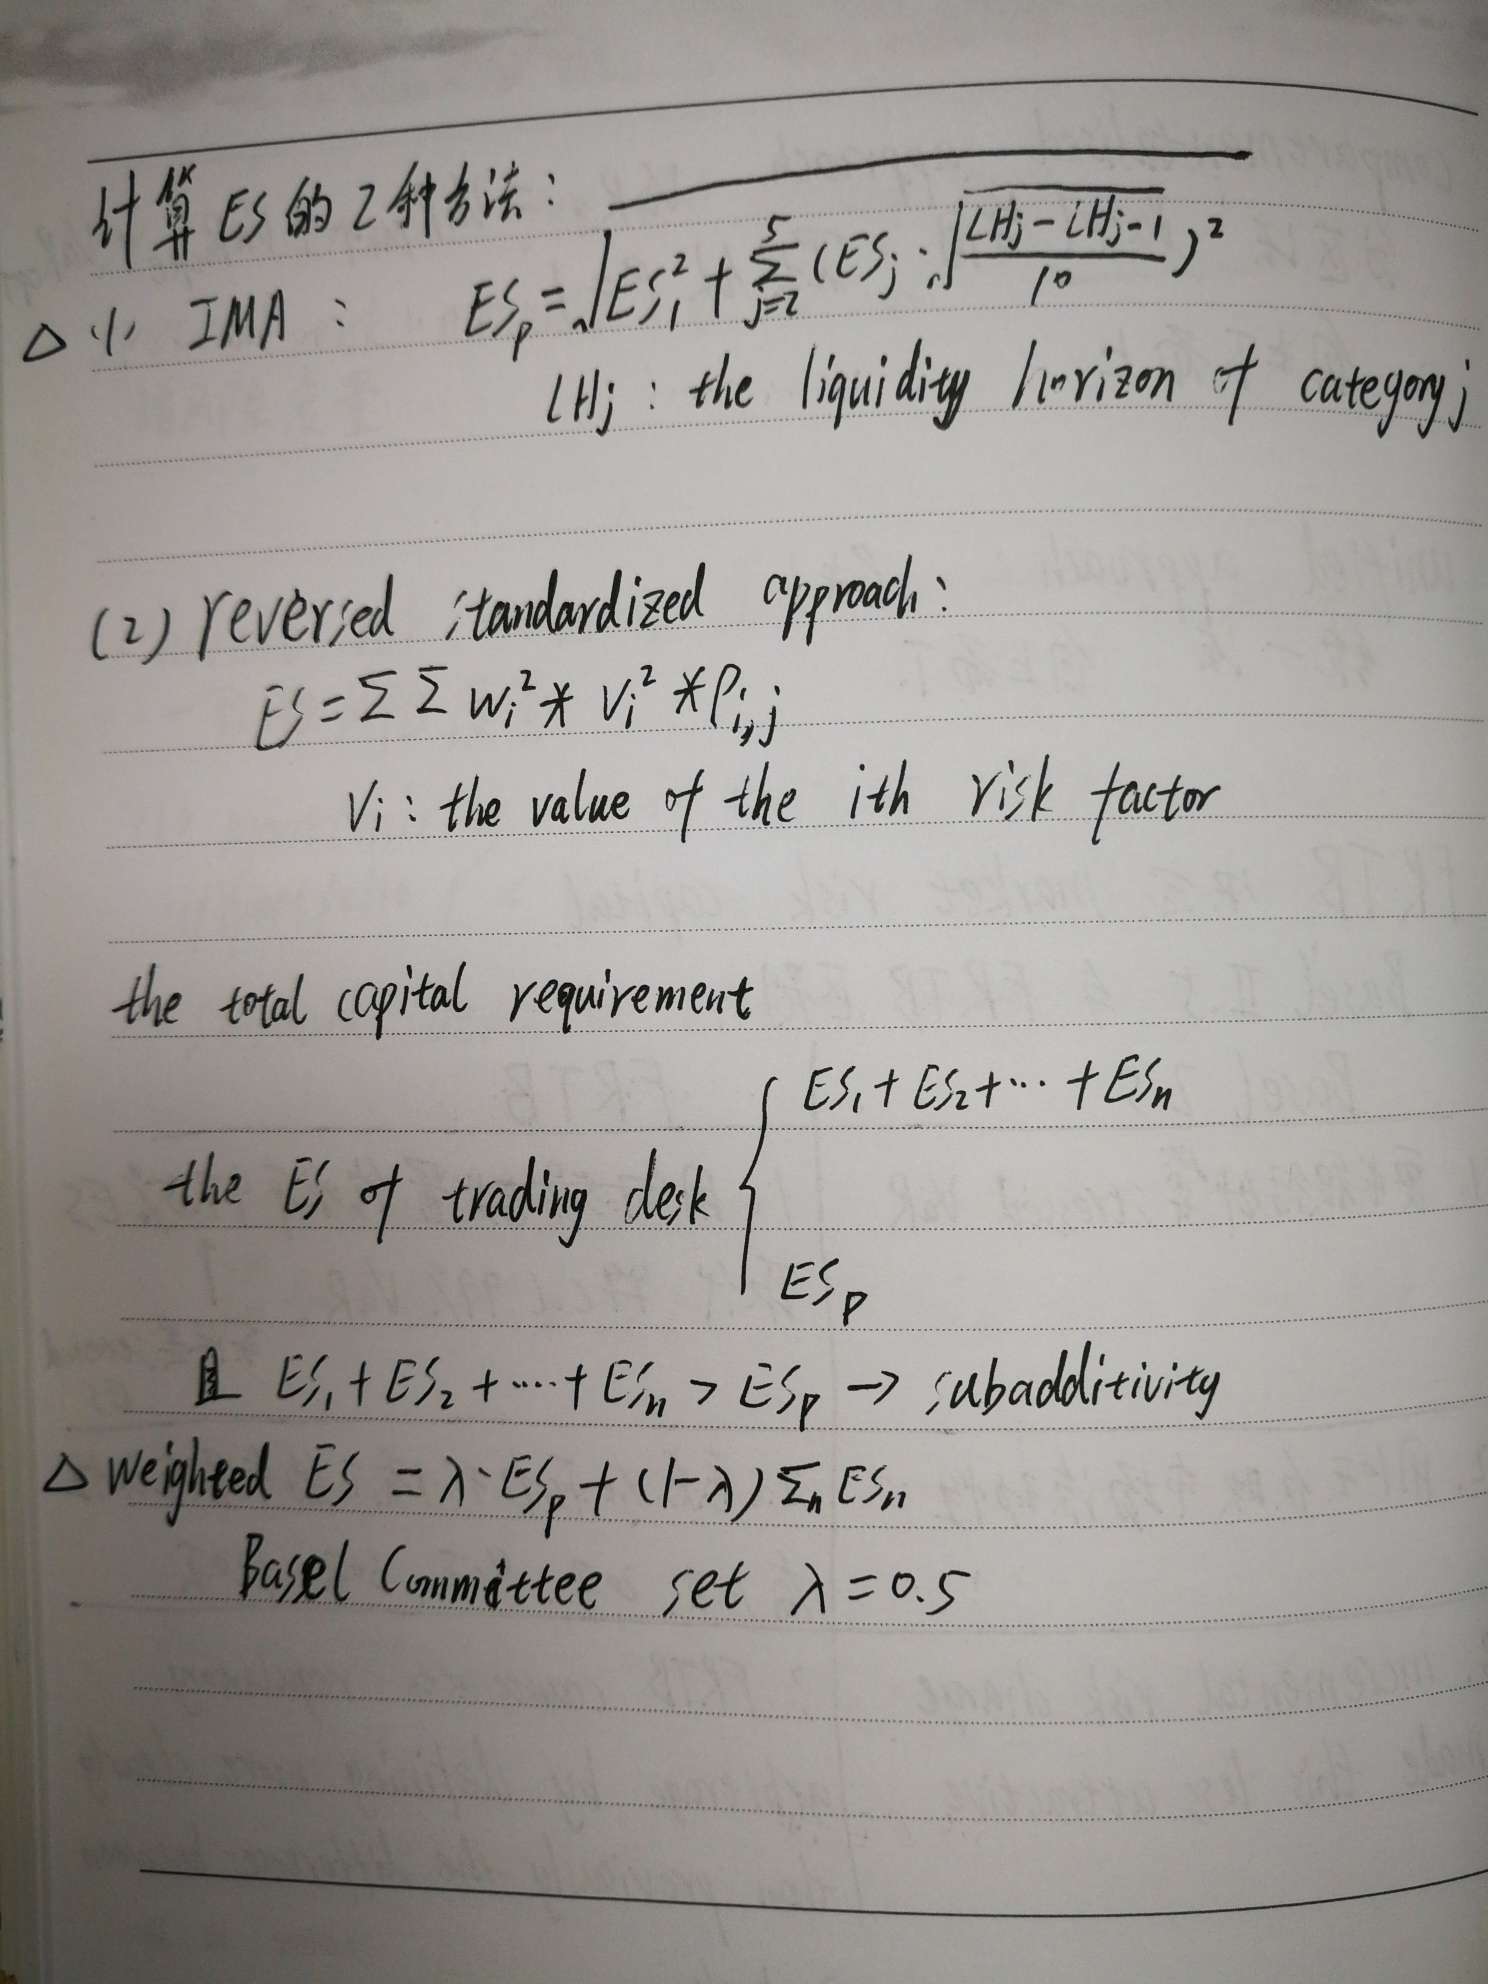 计算ES的2种方法：
△ (1) IMA： ES_p = √(ES₁² + Σ_{j=2}^{5} (ES_j · √((LH_j - LH_{j-1})/10))²)
LHj : the liquidity horizon of category j
(2) reversed standardized approach:
ES = Σ Σ w_i² * V_i² * ρ_{i,j}
Vi : the value of the ith risk factor
the total capital requirement
ES₁ + ES₂ + ··· + ESn
the ES of trading desk {
ES_p
且 ES₁ + ES₂ + ···· + ESn > ES_p → subadditivity
△ weighted ES = λ · ES_p + (1-λ) Σ_n ESn
Basel Committee set λ = 0.5